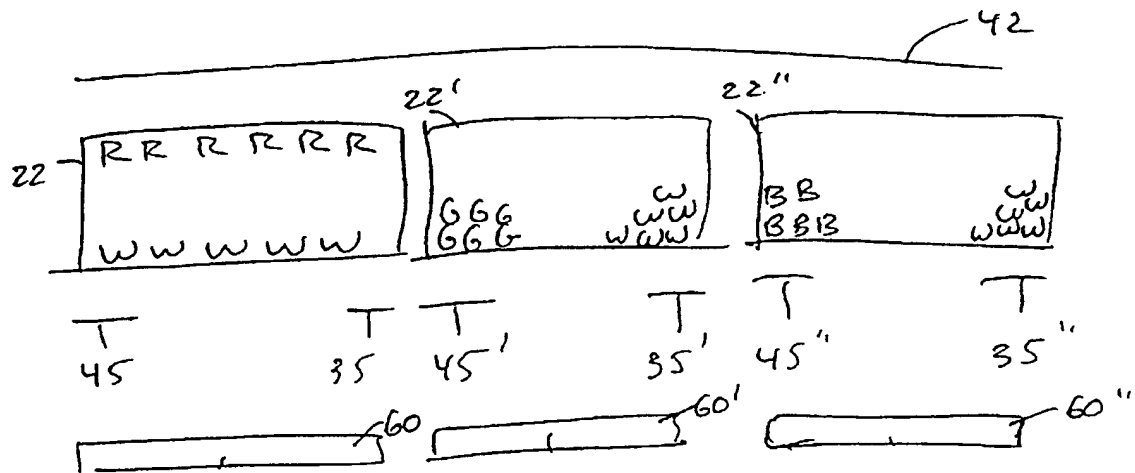 42
22 22' 22"
R R R R R R
W
B B
G G G W W W
G G G W W W B B B W W W
W W W W W
45 35 45' 35' 45" 35"
60 60' 60"